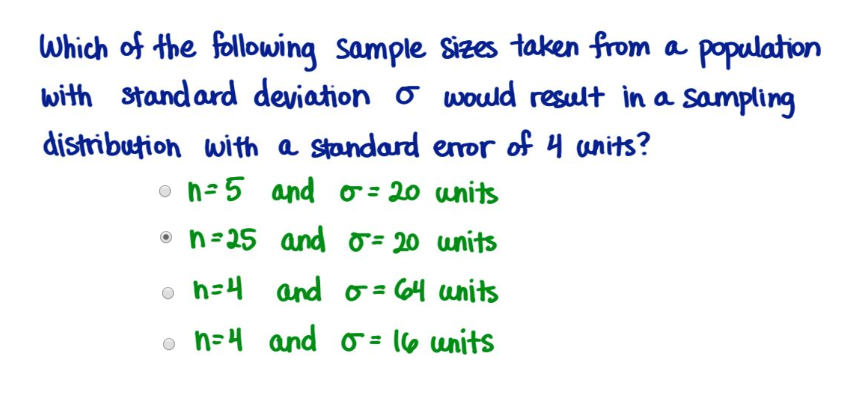 Which of the following sample sizes taken from a population
with standard deviation σ would result in a sampling
distribution with a standard error of 4 units?
n=5 and σ = 20 units
n=25 and σ= 20 units
n=4 and σ = 64 units
n=4 and σ = 16 units